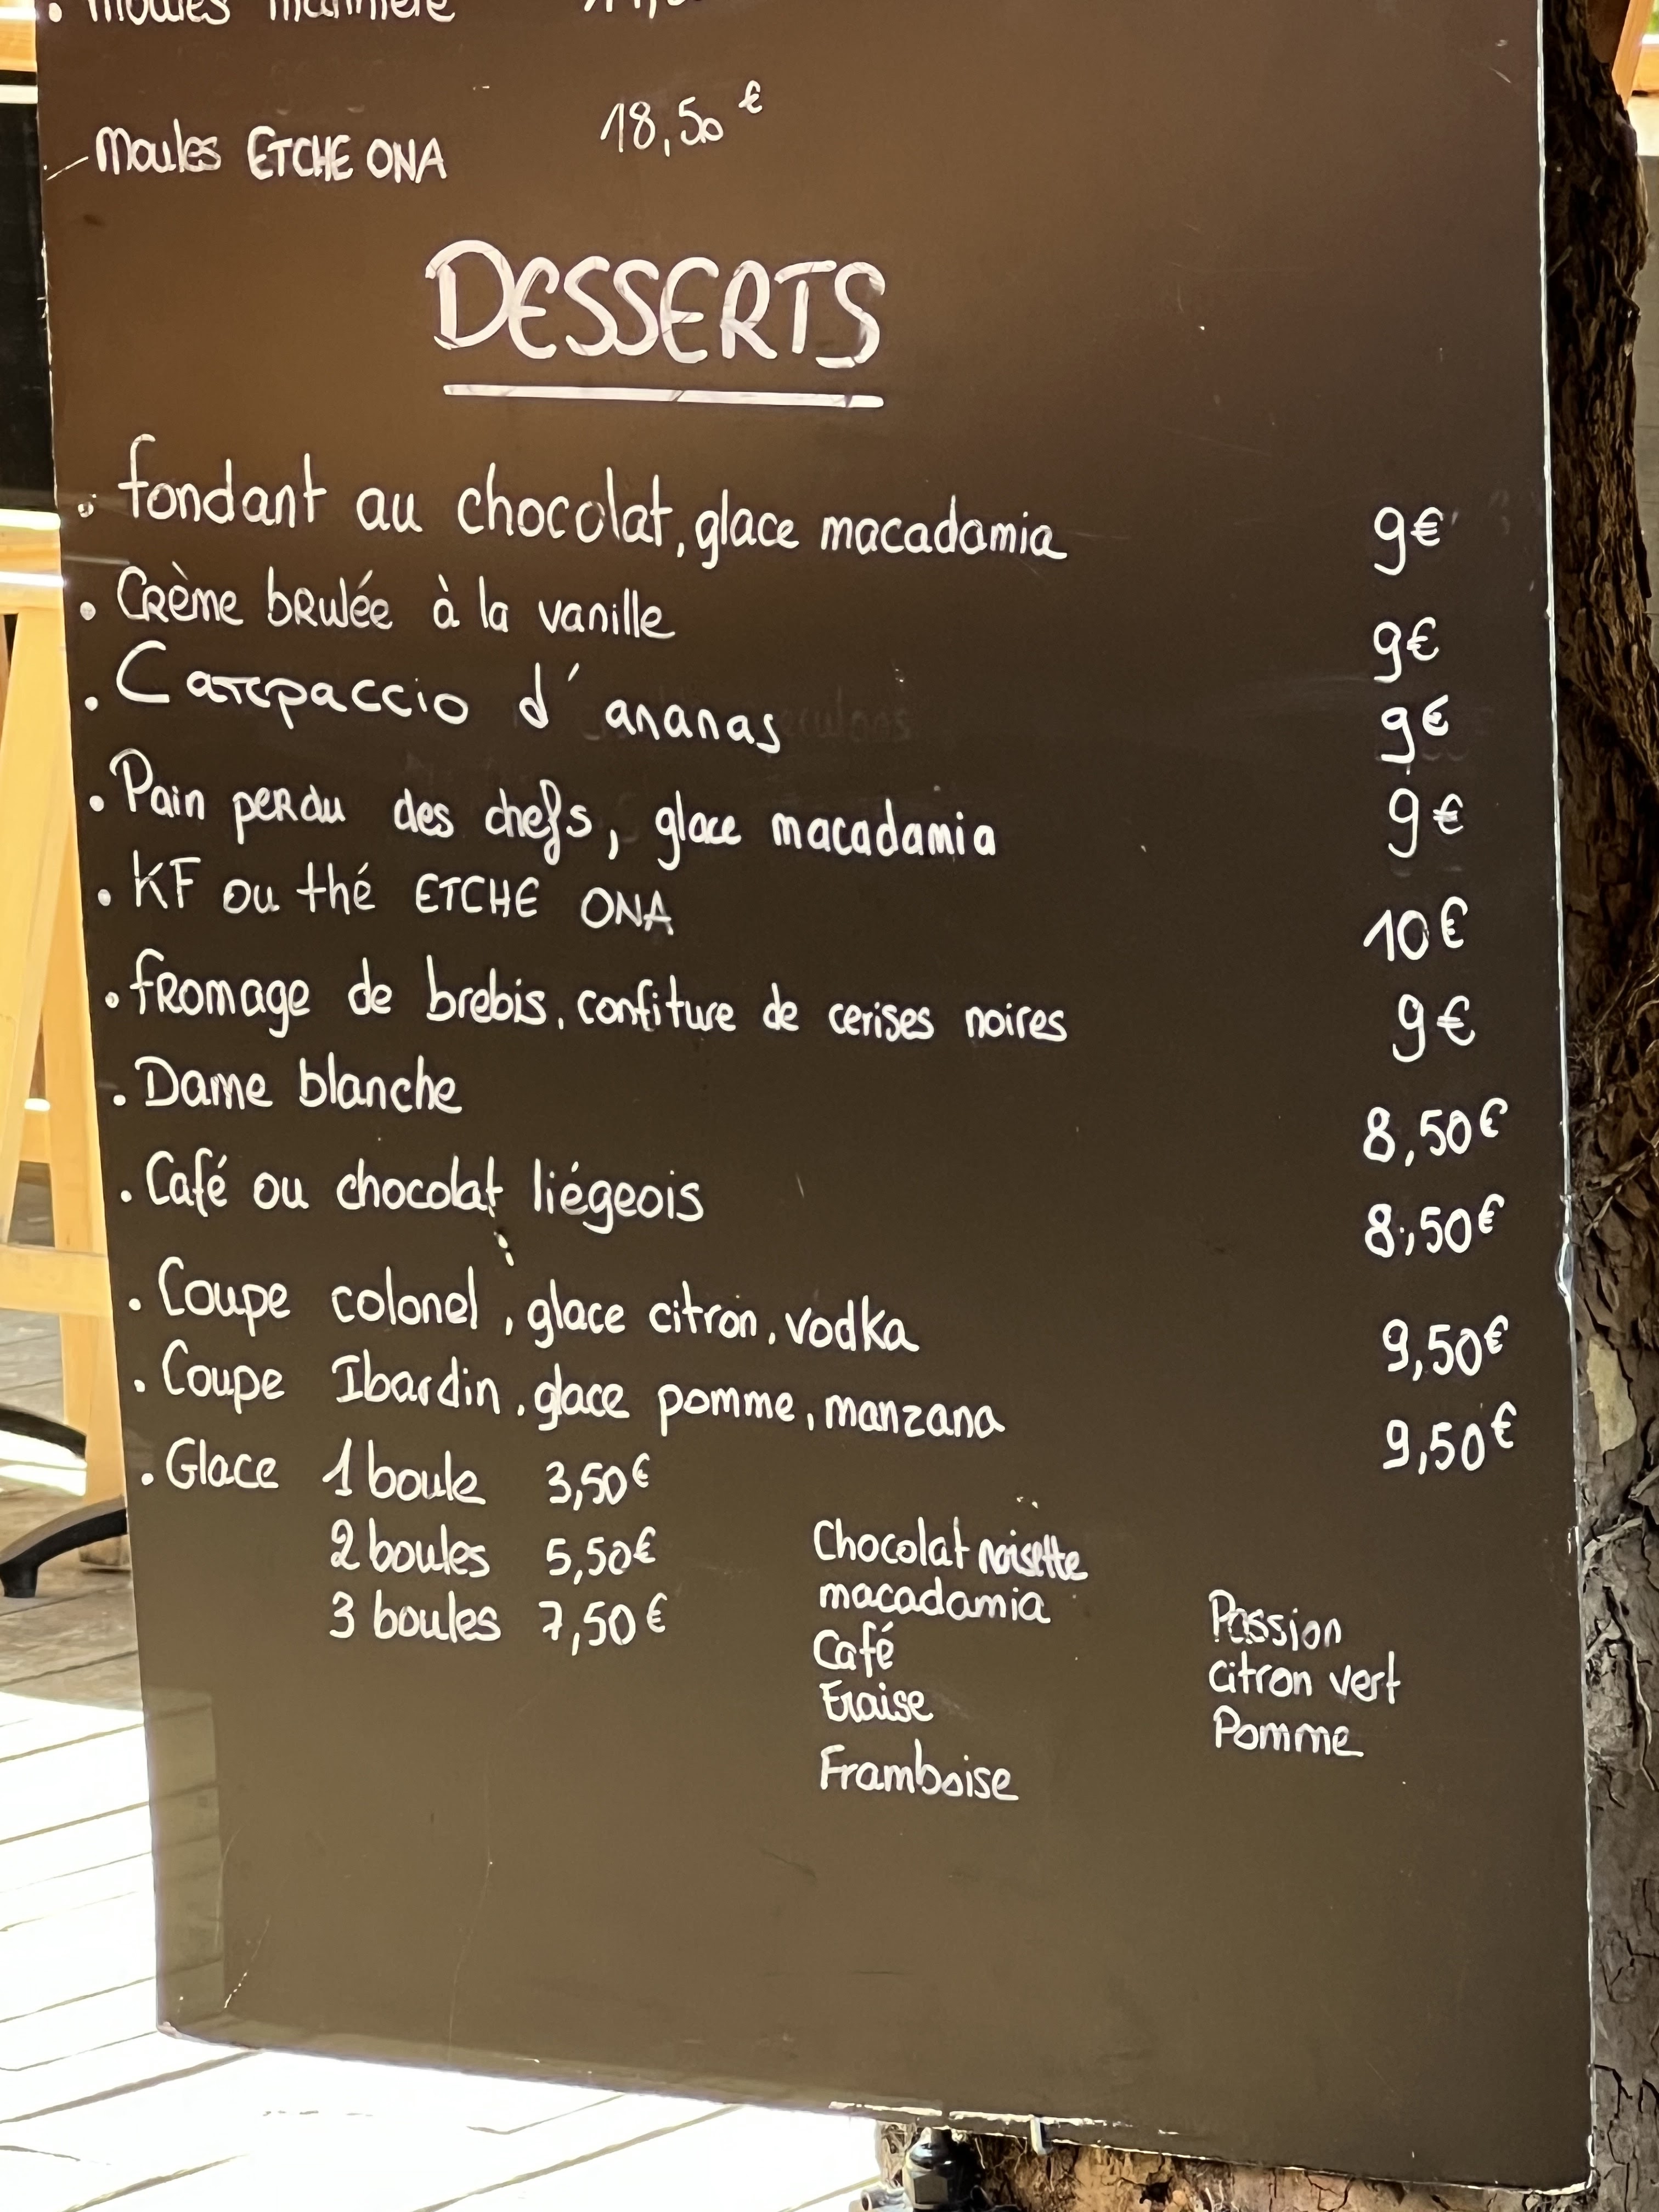 • Moules marinière
- Moules ETCHE ONA 18,50€
DESSERTS
• fondant au chocolat, glace macadamia 9€
• Crème brulée à la vanille 9€
• Carpaccio d'ananas 9€
• Pain perdu des chefs, glace macadamia 9€
• KF ou thé ETCHE ONA 10€
• fromage de brebis, confiture de cerises noires 9€
• Dame blanche 8,50€
• Café ou chocolat liégeois 8,50€
• Coupe colonel, glace citron, vodka 9,50€
• Coupe Ibardin, glace pomme, manzana 9,50€
• Glace 1 boule 3,50€
2 boules 5,50€
3 boules 7,50€
Chocolat noisette
macadamia
Café
Fraise
Framboise
Passion
citron vert
Pomme